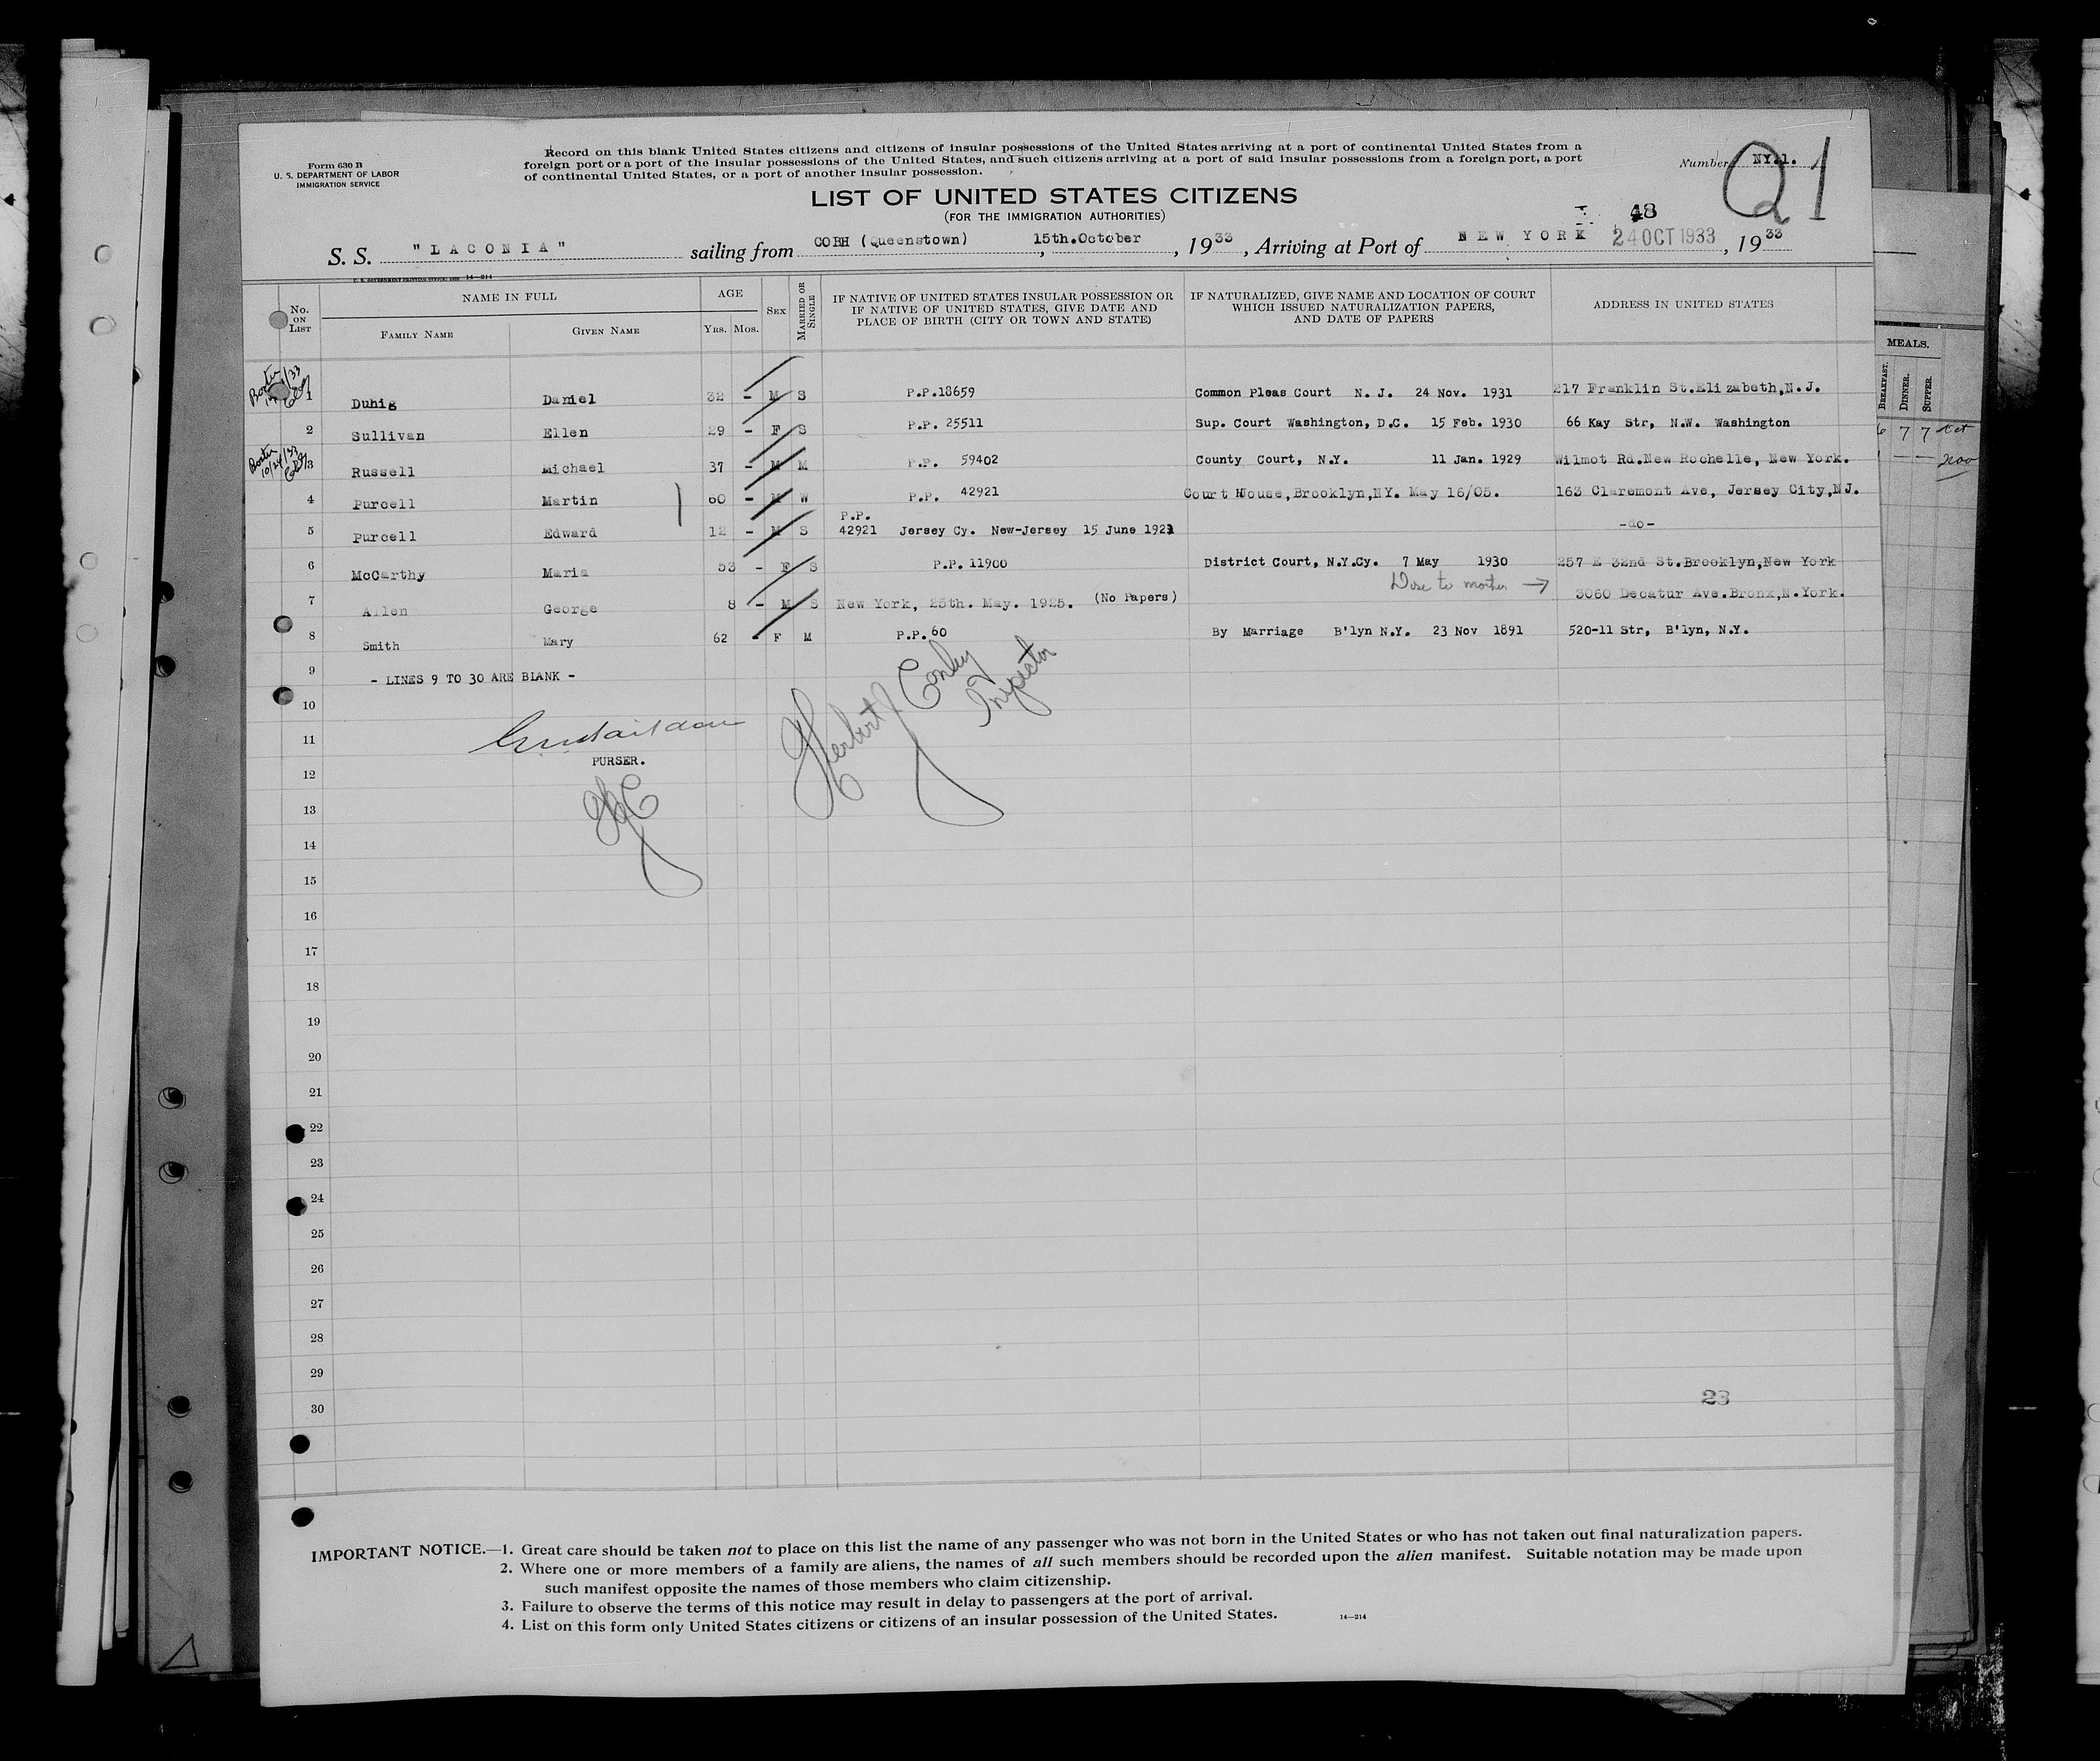 Form 630 B
U. S. DEPARTMENT OF LABOR
IMMIGRATION SERVICE
Record on this blank United States citizens and citizens of insular possessions of the United States arriving at a port of continental United States from a
foreign port or a port of the insular possessions of the United States, and such citizens arriving at a port of said insular possessions from a foreign port, a port
of continental United States, or a port of another insular possession.
Number NY.1.
Q1
LIST OF UNITED STATES CITIZENS
(FOR THE IMMIGRATION AUTHORITIES)
48
S. S. "LACONIA" sailing from COBH (Queenstown), 15th.October, 1933, Arriving at Port of NEW YORK 24 OCT 1933, 1933
14—214
No. ON LIST
NAME IN FULL
FAMILY NAME
GIVEN NAME
AGE
YRS.
MOS.
SEX
MARRIED OR SINGLE
IF NATIVE OF UNITED STATES INSULAR POSSESSION OR
IF NATIVE OF UNITED STATES, GIVE DATE AND
PLACE OF BIRTH (CITY OR TOWN AND STATE)
IF NATURALIZED, GIVE NAME AND LOCATION OF COURT
WHICH ISSUED NATURALIZATION PAPERS,
AND DATE OF PAPERS
ADDRESS IN UNITED STATES
1 Duhig Daniel 32 - M S P.P.18659 Common Pleas Court N. J. 24 Nov. 1931 217 Franklin St.Elizabeth,N.J.
2 Sullivan Ellen 29 - F S P.P. 25511 Sup. Court Washington, D.C. 15 Feb. 1930 66 Kay Str, N.W. Washington
10/24/33
3 Russell Michael 37 - M M P.P. 59402 County Court, N.Y. 11 Jan. 1929 Wilmot Rd.New Rochelle, New York.
4 Purcell Martin 60 - M W P.P. 42921 Court House,Brooklyn,NY. May 16/05. 163 Claremont Ave, Jersey City,NJ.
5 Purcell Edward 12 - M S P.P. 42921 Jersey Cy. New-Jersey 15 June 1921 -do-
6 McCarthy Maria 53 - F S P.P. 11900 District Court, N.Y.Cy. 7 May 1930 257 E 32nd St.Brooklyn,New York
7 Allen George 8 - M S New York, 25th. May. 1925. (No Papers) to mother → 3060 Decatur Ave.Bronx,N.York.
8 Smith Mary 62 - F M P.P. 60 By Marriage B'lyn N.Y. 23 Nov 1891 520-11 Str, B'lyn, N.Y.
9 - LINES 9 TO 30 ARE BLANK -
10
11
PURSER.
Herbert J Conley
Inspector
HJC
12
13
14
15
16
17
18
19
20
21
22
23
24
25
26
27
28
29
30
23
MEALS.
BREAKFAST.
DINNER.
SUPPER.
6 7 7
IMPORTANT NOTICE.—1. Great care should be taken not to place on this list the name of any passenger who was not born in the United States or who has not taken out final naturalization papers.
2. Where one or more members of a family are aliens, the names of all such members should be recorded upon the alien manifest. Suitable notation may be made upon
such manifest opposite the names of those members who claim citizenship.
3. Failure to observe the terms of this notice may result in delay to passengers at the port of arrival.
4. List on this form only United States citizens or citizens of an insular possession of the United States.
14—214